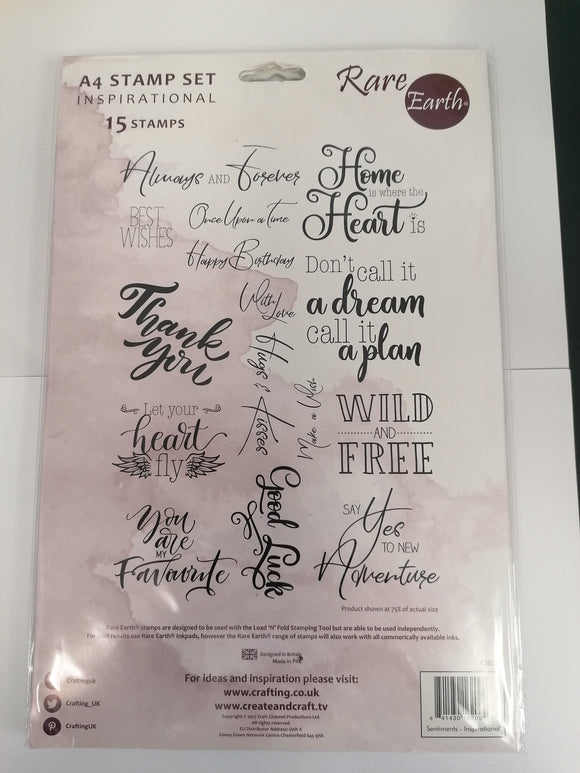 A4 STAMP SET
INSPIRATIONAL
15 STAMPS
Rare
Earth®
Always AND Forever
Home
is where the
Heart is
BEST
WISHES
Once Upon a Time
Happy Birthday
With
Love
Don't call it
a dream
call it
a plan
Thank
you
Hugs & Kisses
Make a Wish
Let your
heart
fly
WILD
AND
FREE
Good Luck
You
are
MY
Favourite
SAY Yes
TO NEW
Adventure
Product shown at 75% of actual size
Rare Earth® stamps are designed to be used with the Load 'N' Fold Stamping Tool but are able to be used independently.
For best results use Rare Earth® Inkpads, however the Rare Earth® range of stamps will also work with all commerically available inks.
Designed in Britain
Made in PRC
Craftinguk
Crafting_UK
CraftingUK
For ideas and inspiration please visit:
www.crafting.co.uk
www.createandcraft.tv
Copyright © 2017 Craft Channel Productions Ltd.
All rights reserved.
EU Distributor Address: Unit A
Coney Green Network Centre Chesterfield S45 9HX
Sentiments - Inspirational